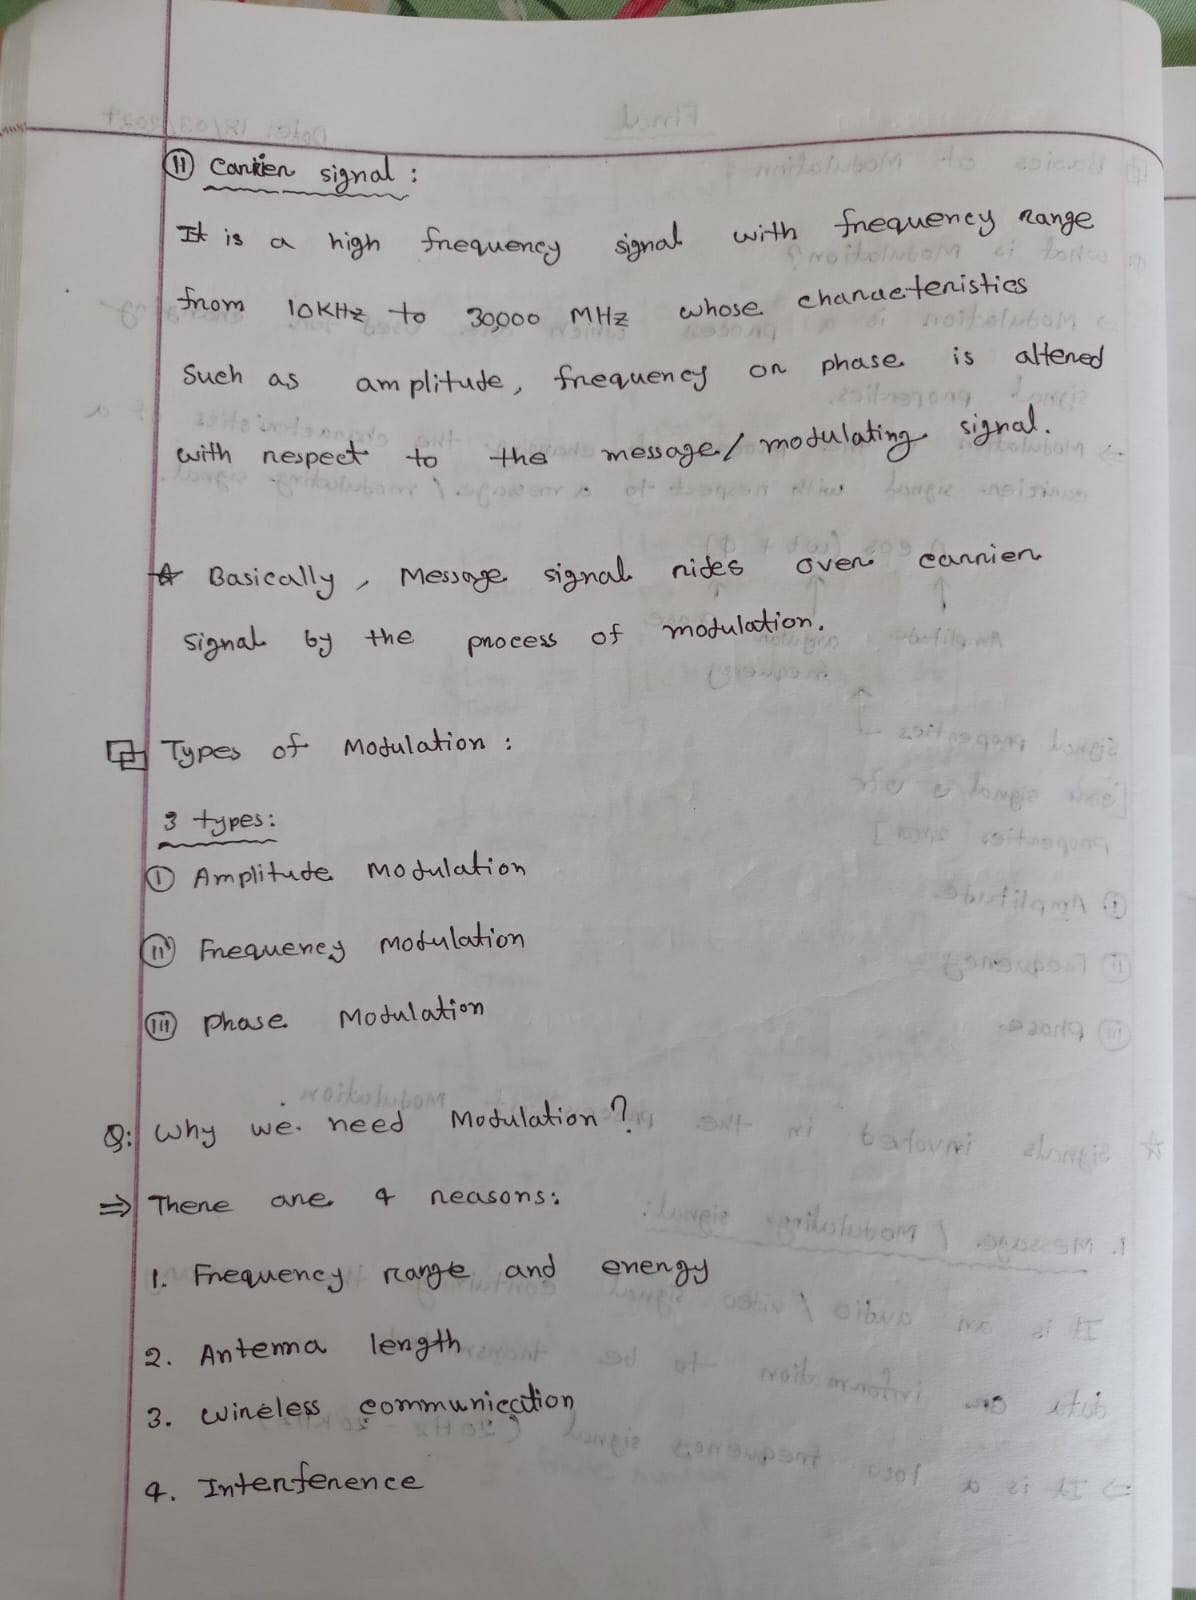 (ii) Carrier signal :
It is a high frequency signal with frequency range
from 10KHz to 30,000 MHz whose characteristics
Such as amplitude, frequency or phase is altered
with respect to the message/modulating signal.
☆ Basically, Message signal rides over carrier
signal by the process of modulation.
Types of Modulation :
3 types:
(i) Amplitude Modulation
(ii) Frequency Modulation
(iii) Phase Modulation
Q: Why we need Modulation?
⇒ There are 4 reasons:
1. Frequency range and energy
2. Antenna length
3. Wireless communication
4. Interference